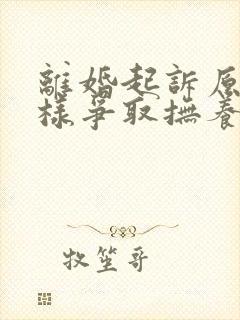 離婚起訴原
樣爭取撫養
牧笙哥